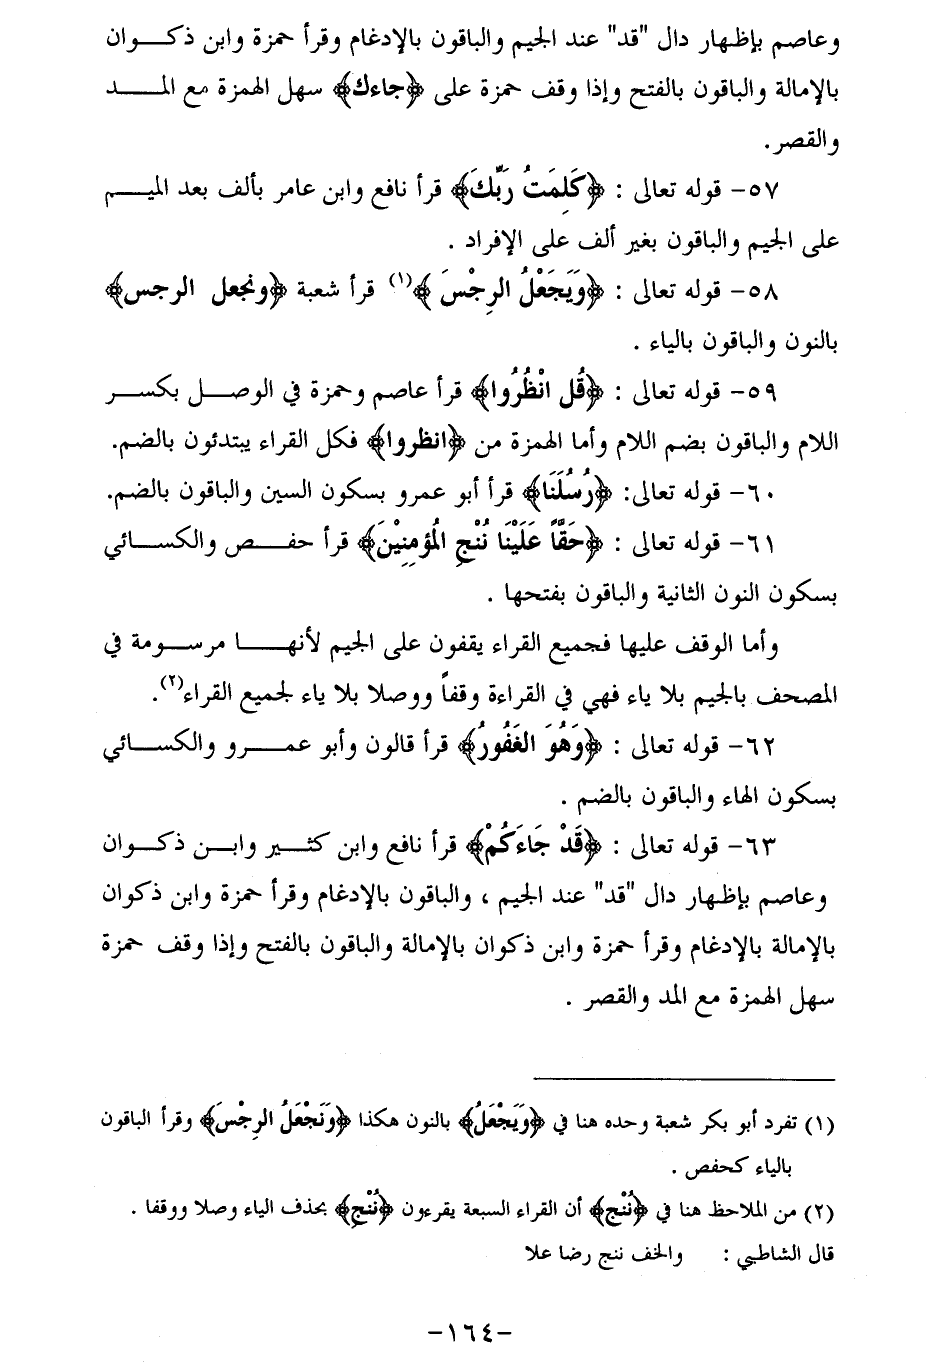 وعاصم بإظهار دال "قد" عند الجيم والباقون بالإدغام وقرأ حمزة وابن ذكوان
بالإمالة والباقون بالفتح وإذا وقف حمزة على ﴿جاءك﴾ سهل الهمزة مع المد
والقصر.
٥٧- قوله تعالى : ﴿كَلِمَتُ رَبِّكَ﴾ قرأ نافع وابن عامر بألف بعد الميم
على الجيم والباقون بغير ألف على الإفراد .
٥٨- قوله تعالى : ﴿وَيَجْعَلُ الرِجْسَ﴾(١) قرأ شعبة ﴿ونجعل الرجس﴾
بالنون والباقون بالياء .
٥٩- قوله تعالى : ﴿قُل انْظُرُوا﴾ قرأ عاصم وحمزة في الوصل بكسر
اللام والباقون بضم اللام وأما الهمزة من ﴿انظروا﴾ فكل القراء يبتدئون بالضم.
٦٠- قوله تعالى: ﴿رُسُلَنَا﴾ قرأ أبو عمرو بسكون السين والباقون بالضم.
٦١- قوله تعالى : ﴿حَقَّاً عَلَيْنَا نُنْجِ المُؤمِنِيْنَ﴾ قرأ حفص والكسائي
بسكون النون الثانية والباقون بفتحها .
وأما الوقف عليها فجميع القراء يقفون على الجيم لأنها مرسومة في
المصحف بالجيم بلا ياء فهي في القراءة وقفاً ووصلا بلا ياء لجميع القراء(٢).
٦٢- قوله تعالى : ﴿وَهُوَ الغَفُورُ﴾ قرأ قالون وأبو عمرو والكسائي
بسكون الهاء والباقون بالضم .
٦٣- قوله تعالى : ﴿قَدْ جَاءَكُمْ﴾ قرأ نافع وابن كثير وابن ذكوان
وعاصم بإظهار دال "قد" عند الجيم ، والباقون بالإدغام وقرأ حمزة وابن ذكوان
بالإمالة بالإدغام وقرأ حمزة وابن ذكوان بالإمالة والباقون بالفتح وإذا وقف حمزة
سهل الهمزة مع المد والقصر .
(١) تفرد أبو بكر شعبة وحده هنا في ﴿وَيَجْعَلُ﴾ بالنون هكذا ﴿وَنَجْعَلُ الرِجْسَ﴾ وقرأ الباقون
بالياء كحفص .
(٢) من الملاحظ هنا في ﴿نُنْجِ﴾ أن القراء السبعة يقرءون ﴿نُنْجِ﴾ بحذف الياء وصلا ووقفا .
قال الشاطبي : والخف ننج رضا علا
-١٦٤-